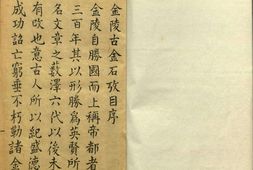 金陵古金石攷目序
金陵自勝國而上稱帝都者
三百年其以形勝爲英賢所
名文章之藪澤六代以後未
有攸也意古人所以紀盛德
成功詔亡窮垂不朽勒諸金